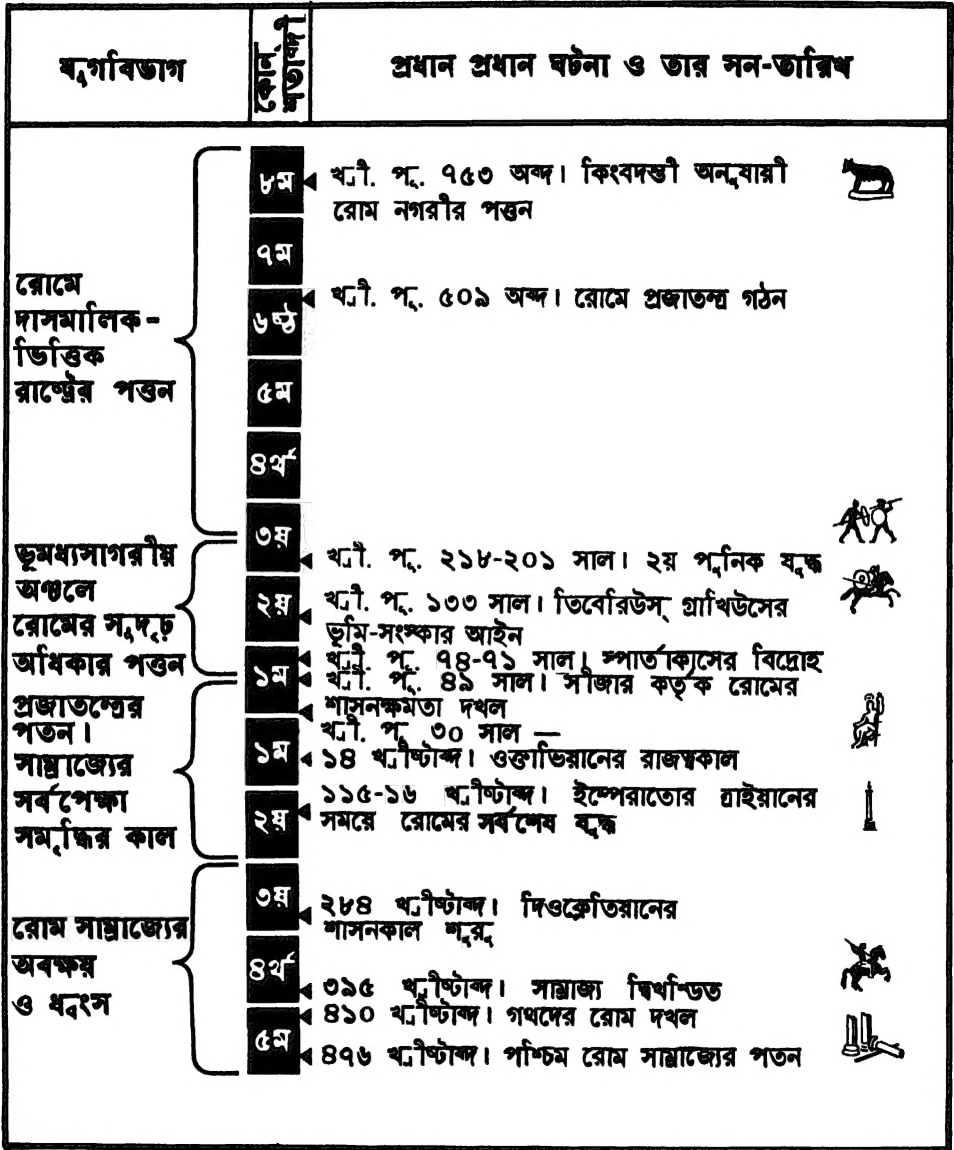 যুগবিভাগ
কোন্ শতাব্দী
প্রধান প্রধান ঘটনা ও তার সন-তারিখ
রোমে
দাসমালিক-
ভিত্তিক
রাষ্ট্রের পত্তন
ভূমধ্যসাগরীয়
অঞ্চলে
রোমের সুদৃঢ়
অধিকার পত্তন
প্রজাতন্ত্রের
পতন।
সাম্রাজ্যের
সর্বপেক্ষা
সমৃদ্ধির কাল
রোম সাম্রাজ্যের
অবক্ষয়
ও ধ্বংস
৮ম
৭ম
৬ষ্ঠ
৫ম
৪র্থ
৩য়
২য়
১ম
১ম
২য়
৩য়
৪র্থ
৫ম
খ্রী. পূ. ৭৫৩ অব্দ। কিংবদন্তী অনুযায়ী
রোম নগরীর পত্তন
খ্রী. পূ. ৫০৯ অব্দ। রোমে প্রজাতন্ত্র গঠন
খ্রী. পূ. ২১৮-২০১ সাল। ২য় পুনিক যুদ্ধ
খ্রী. পূ. ১৩৩ সাল। তিবেরিউস্ গ্রাখিউসের
ভূমি-সংস্কার আইন
খ্রী. পূ. ৭৪-৭১ সাল। স্পার্তাক্যুসের বিদ্রোহ
খ্রী. পূ. ৪৯ সাল। সীজার কর্তৃক রোমের
শাসনক্ষমতা দখল
খ্রী. পূ. ৩০ সাল —
১৪ খ্রীষ্টাব্দ। ওক্তাভিয়ানের রাজত্বকাল
১১৫-১৬ খ্রীষ্টাব্দ। ইম্পেরাতোর ত্রাইয়ানের
সময়ে রোমের সর্বশেষ যুদ্ধ
২৮৪ খ্রীষ্টাব্দ। দিওক্লেতিয়ানের
শাসনকাল শুরু
৩৯৫ খ্রীষ্টাব্দ। সাম্রাজ্য দ্বিখণ্ডিত
৪১০ খ্রীষ্টাব্দ। গথদের রোম দখল
৪৭৬ খ্রীষ্টাব্দ। পশ্চিম রোম সাম্রাজ্যের পতন